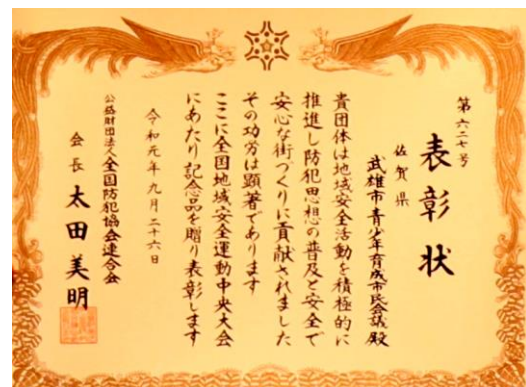 第六二七号
表彰状
佐賀県
武雄市青少年育成市民会議殿
貴団体は地域安全活動を積極的に
推進し防犯思想の普及と安全で
安心な街づくりに貢献されました
その功労は顕著であります
ここに全国地域安全運動中央大会
にあたり記念品を贈り表彰します
令和元年九月二十六日
公益財団法人全国防犯協会連合会
会長 太田美明